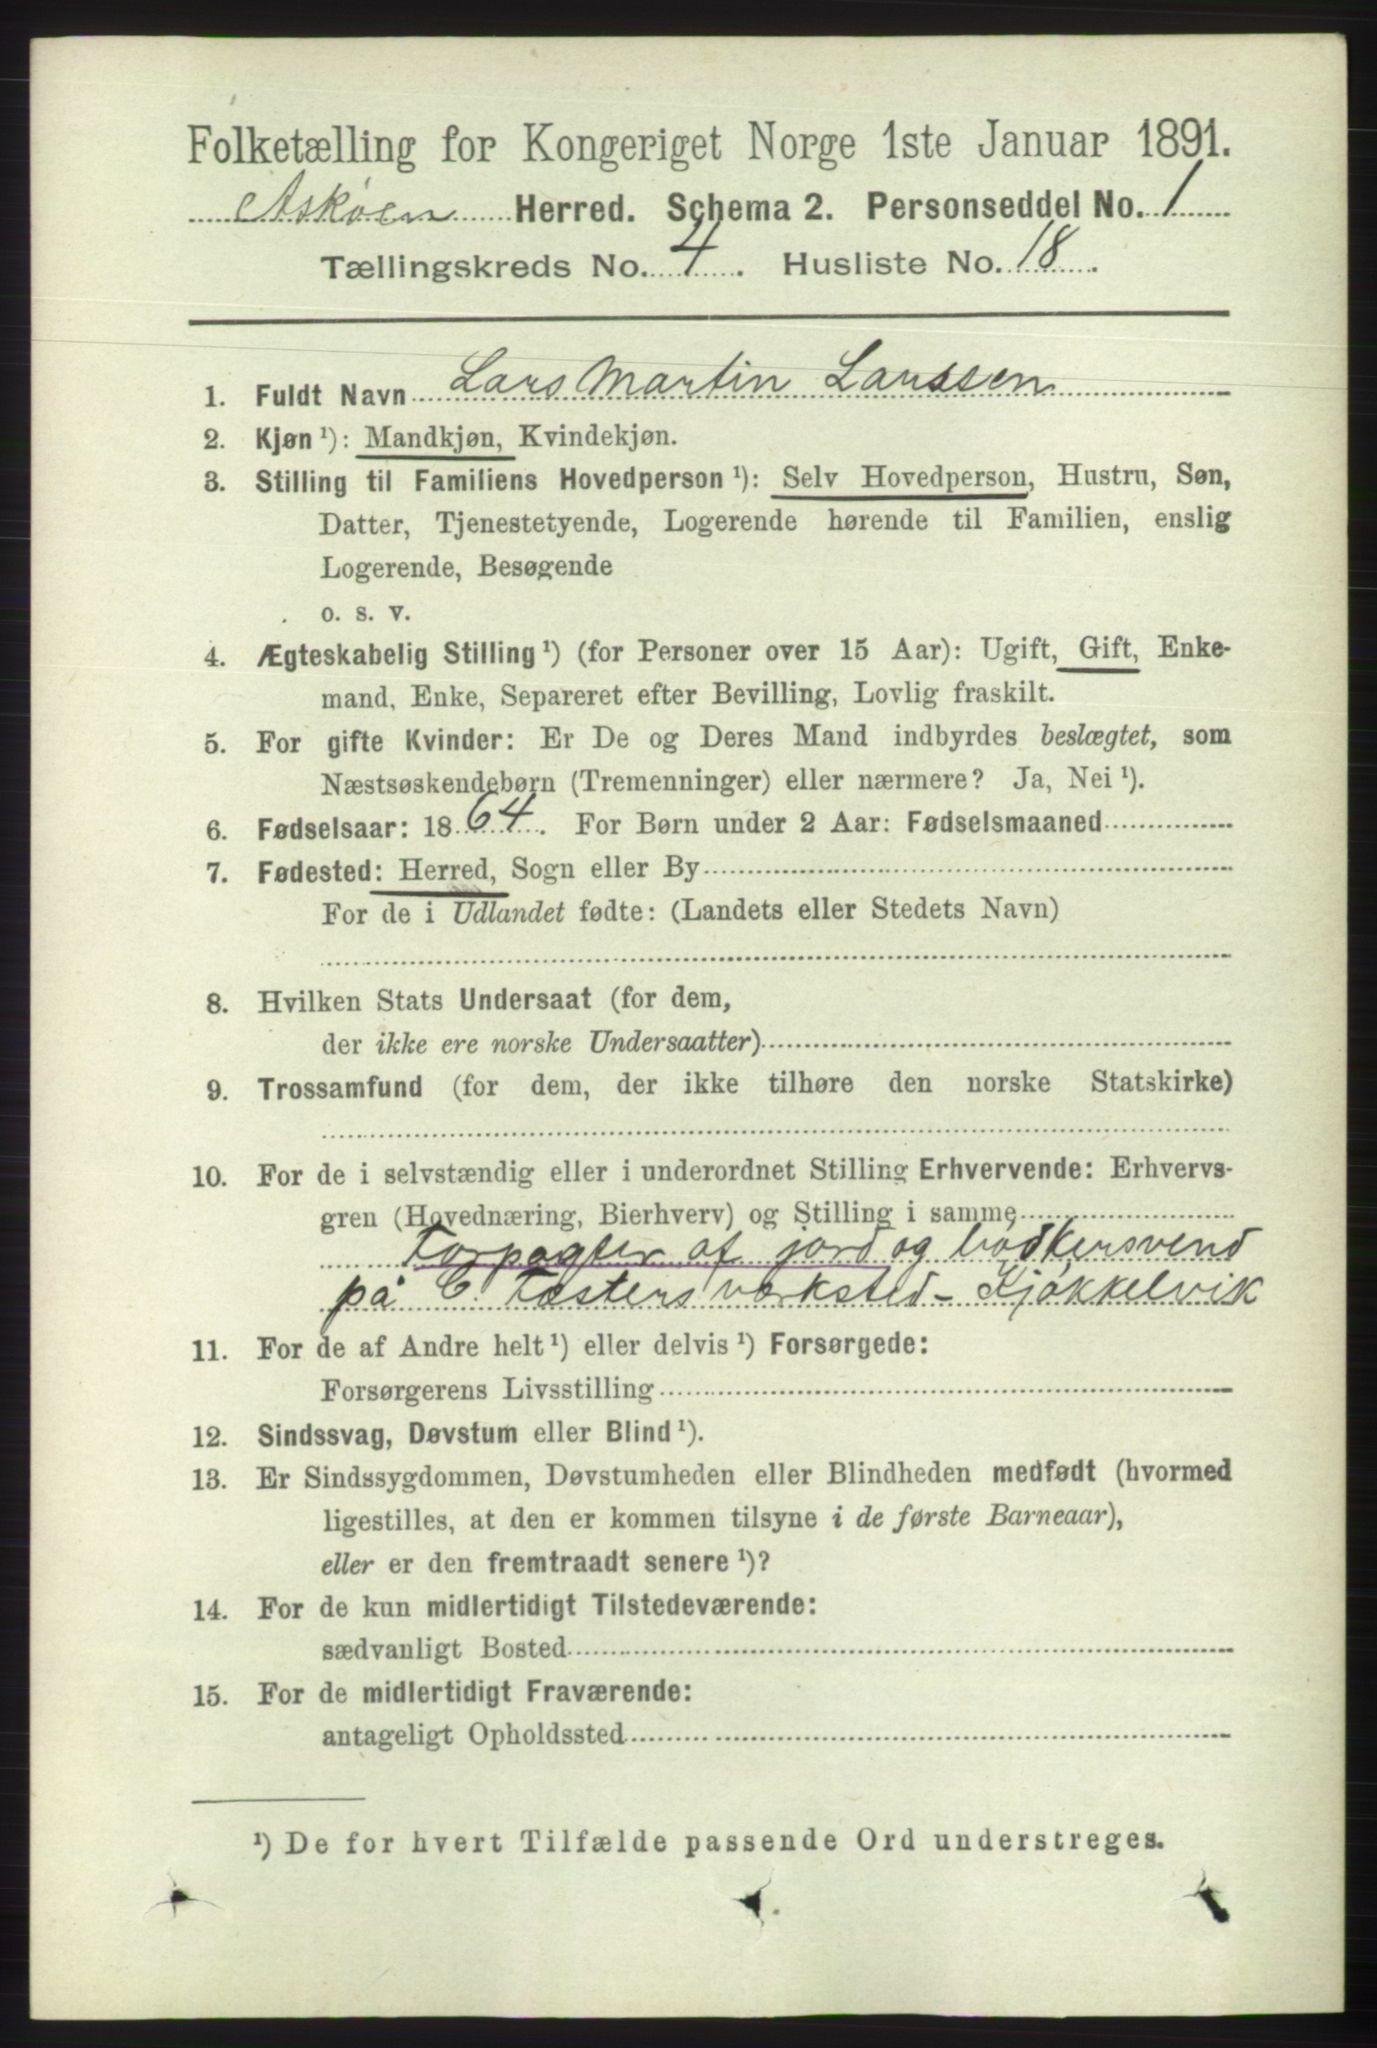 Folketælling for Kongeriget Norge 1ste Januar 1891.
Askøen Herred. Schema 2. Personseddel No. 1
Tællingskreds No. 4. Husliste No. 18.
1. Fuldt Navn Lars Martin Larssen
2. Kjøn ¹): Mandkjøn, Kvindekjøn.
3. Stilling til Familiens Hovedperson ¹): Selv Hovedperson, Hustru, Søn,
Datter, Tjenestetyende, Logerende hørende til Familien, enslig
Logerende, Besøgende
o. s. v.
4. Ægteskabelig Stilling ¹) (for Personer over 15 Aar): Ugift, Gift, Enke-
mand, Enke, Separeret efter Bevilling, Lovlig fraskilt.
5. For gifte Kvinder: Er De og Deres Mand indbyrdes beslægtet, som
Næstsøskendebørn (Tremenninger) eller nærmere? Ja, Nei ¹).
6. Fødselsaar: 1864. For Børn under 2 Aar: Fødselsmaaned
7. Fødested: Herred, Sogn eller By
For de i Udlandet fødte: (Landets eller Stedets Navn)
8. Hvilken Stats Undersaat (for dem,
der ikke ere norske Undersaatter)
9. Trossamfund (for dem, der ikke tilhøre den norske Statskirke)
10. For de i selvstændig eller i underordnet Stilling Erhvervende: Erhvervs-
gren (Hovednæring, Bierhverv) og Stilling i samme
Forpagter af jord og bødkersvend
på C. Fasters værksted - Kjøkkelvik
11. For de af Andre helt ¹) eller delvis ¹) Forsørgede:
Forsørgerens Livsstilling
12. Sindssvag, Døvstum eller Blind ¹).
13. Er Sindssygdommen, Døvstumheden eller Blindheden medfødt (hvormed
ligestilles, at den er kommen tilsyne i de første Barneaar),
eller er den fremtraadt senere ¹)?
14. For de kun midlertidigt Tilstedeværende:
sædvanligt Bosted
15. For de midlertidigt Fraværende:
antageligt Opholdssted
¹) De for hvert Tilfælde passende Ord understreges.